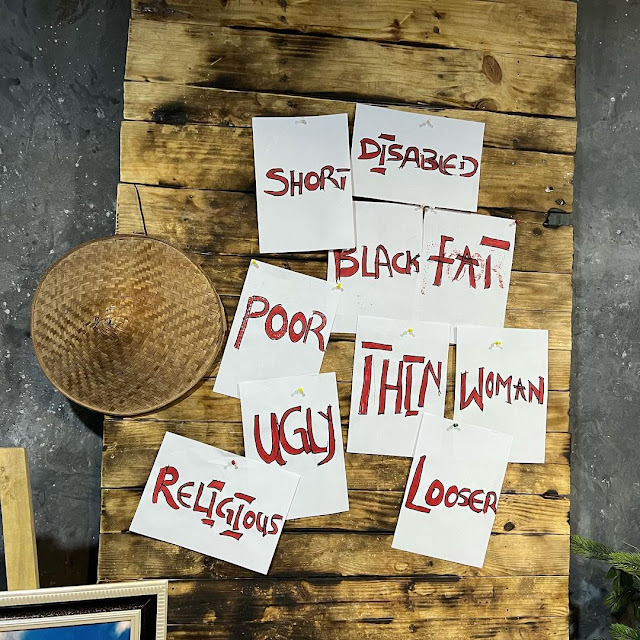 SHORT
DISABLED
BLACK
FAT
POOR
THIN
WOMAN
UGLY
RELIGIOUS
LOOSER